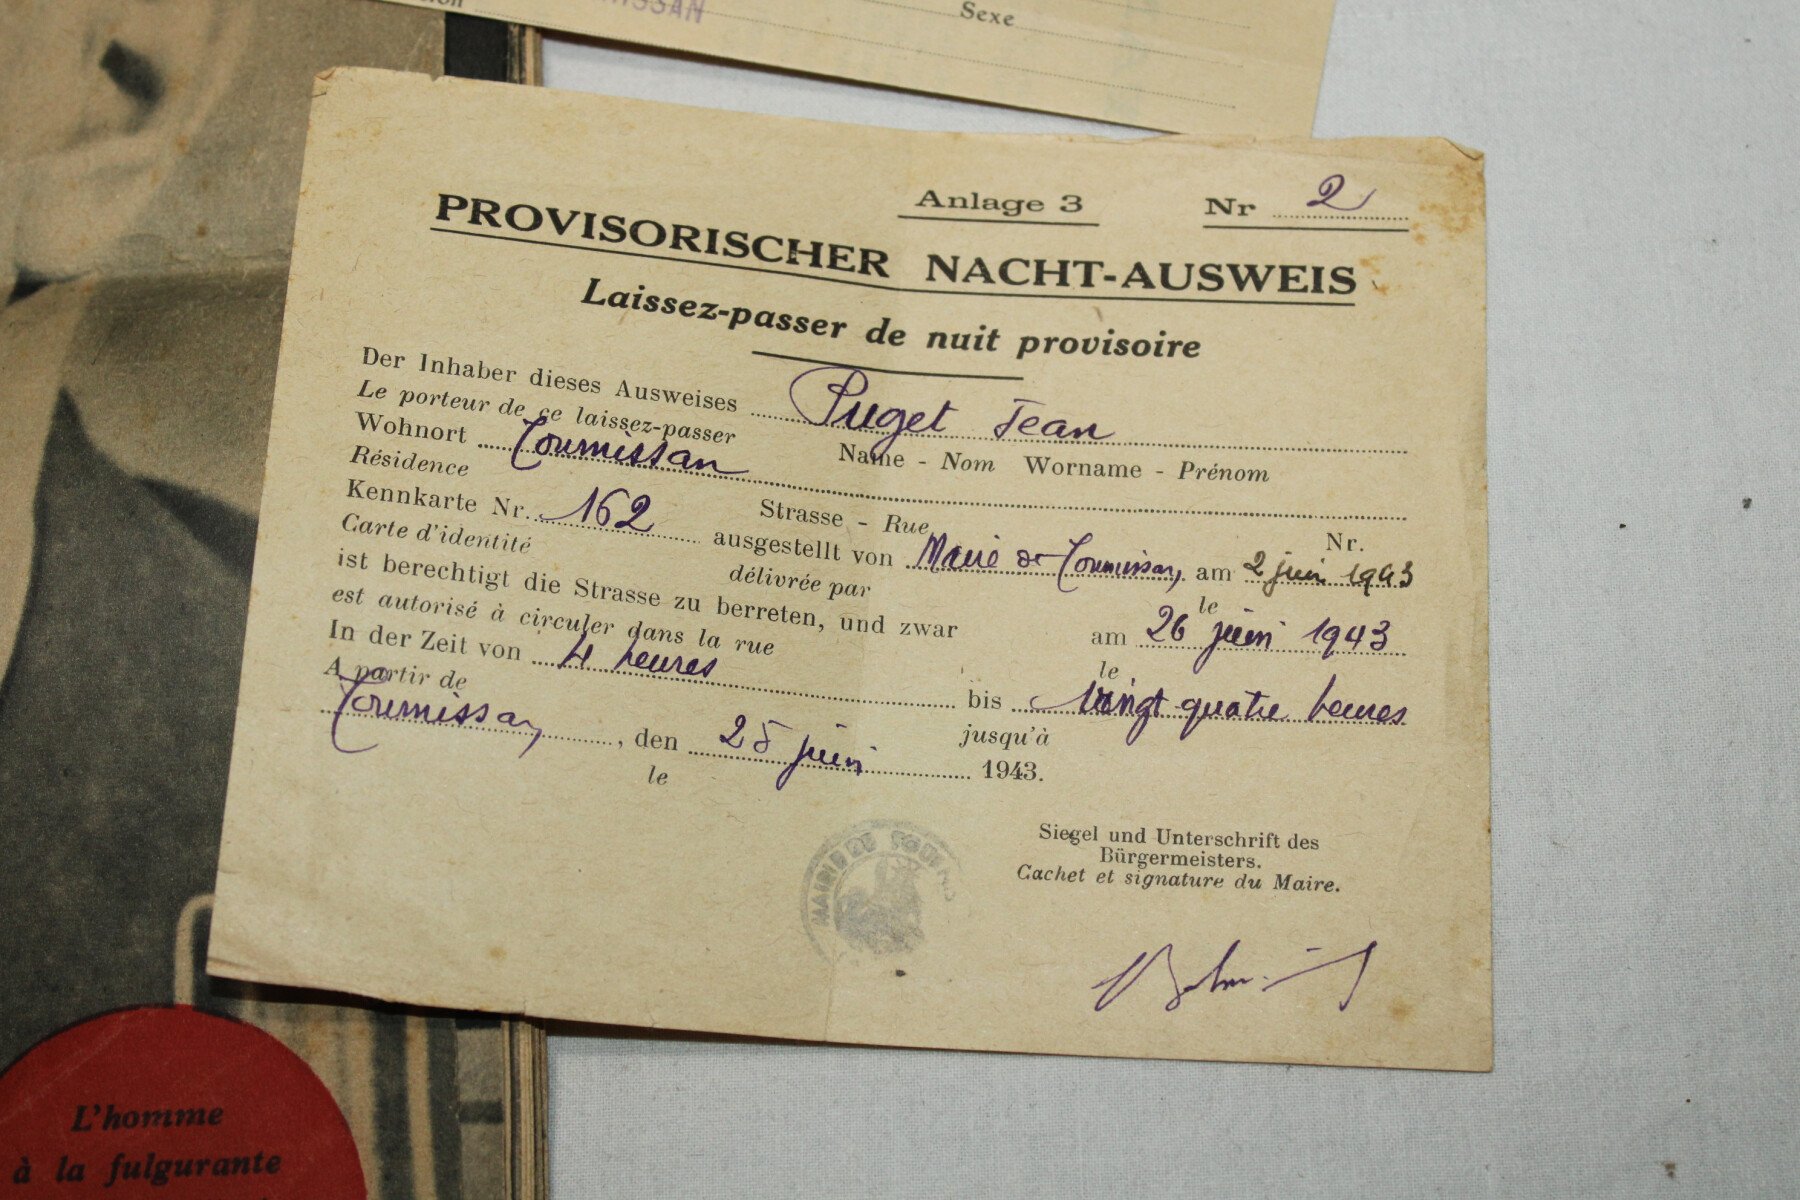 Sexe
Anlage 3
Nr 2
PROVISORISCHER NACHT-AUSWEIS
Laissez-passer de nuit provisoire
Der Inhaber dieses Ausweises Puget Jean
Le porteur de ce laissez-passer
Name - Nom Worname - Prénom
Wohnort Tournissan
Résidence
Strasse - Rue Nr.
Kennkarte Nr. 162 ausgestellt von Mairie de Tournissan, am 2 juin 1943
Carte d'identité délivrée par le
ist berechtigt die Strasse zu berreten, und zwar am 26 juin 1943
est autorisé à circuler dans la rue le
In der Zeit von 4 heures bis vingt quatre heures
A partir de jusqu'à
Tournissan, den 25 juin 1943.
le
Siegel und Unterschrift des
Bürgermeisters.
Cachet et signature du Maire.
MAIRIE DE
L'homme
à la fulgurante